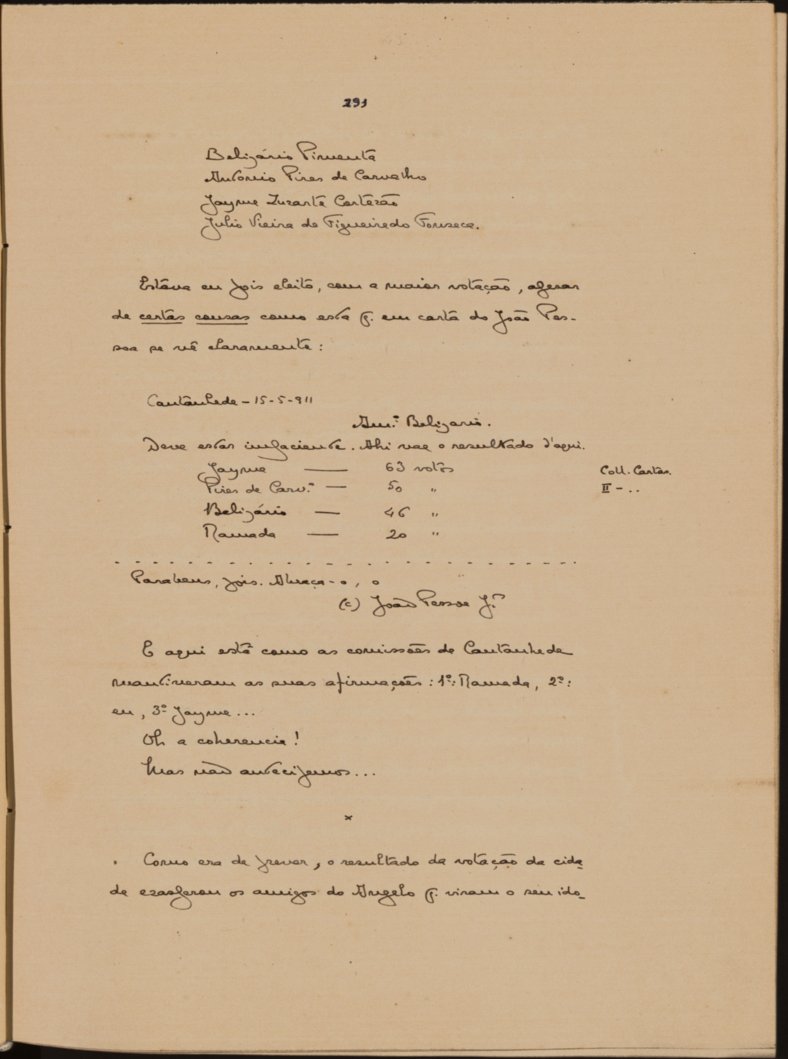 291
Belizário Pimenta
António Pires de Carvalho
Jayme Zuzarte Cortezão
Julio Vieira de Figueiredo Fonseca.
Estáva eu pois eleito, com a maior votação, apezar
de certas cousas como esta q. em carta do João Pes-
soa se vê claramente:
Cantanhede - 15-5-911
Am.º Belizario.
Deve estar impaciente. Ahi vae o resultado d'aqui.
Jayme —— 63 votos
Coll. Cartas.
Pires de Carv.º — 50 "
II - ..
Belizário — 46 "
Ramada —— 20 "
. . . . . . . . . . . . . . . . . . . . . . . . . . .
Parabens, pois. Abraça-o, o
(a) João Pessoa J.or
E aqui está como as comissões de Cantanhede
mantiveram as suas afirmações: 1º: Ramada, 2º:
eu, 3º Jayme ...
Oh a coherencia!
Mas não antecipemos...
×
Como era de prever, o resultado da votação da cida-
de exasperou os amigos do Angelo q. viram o seu ido-